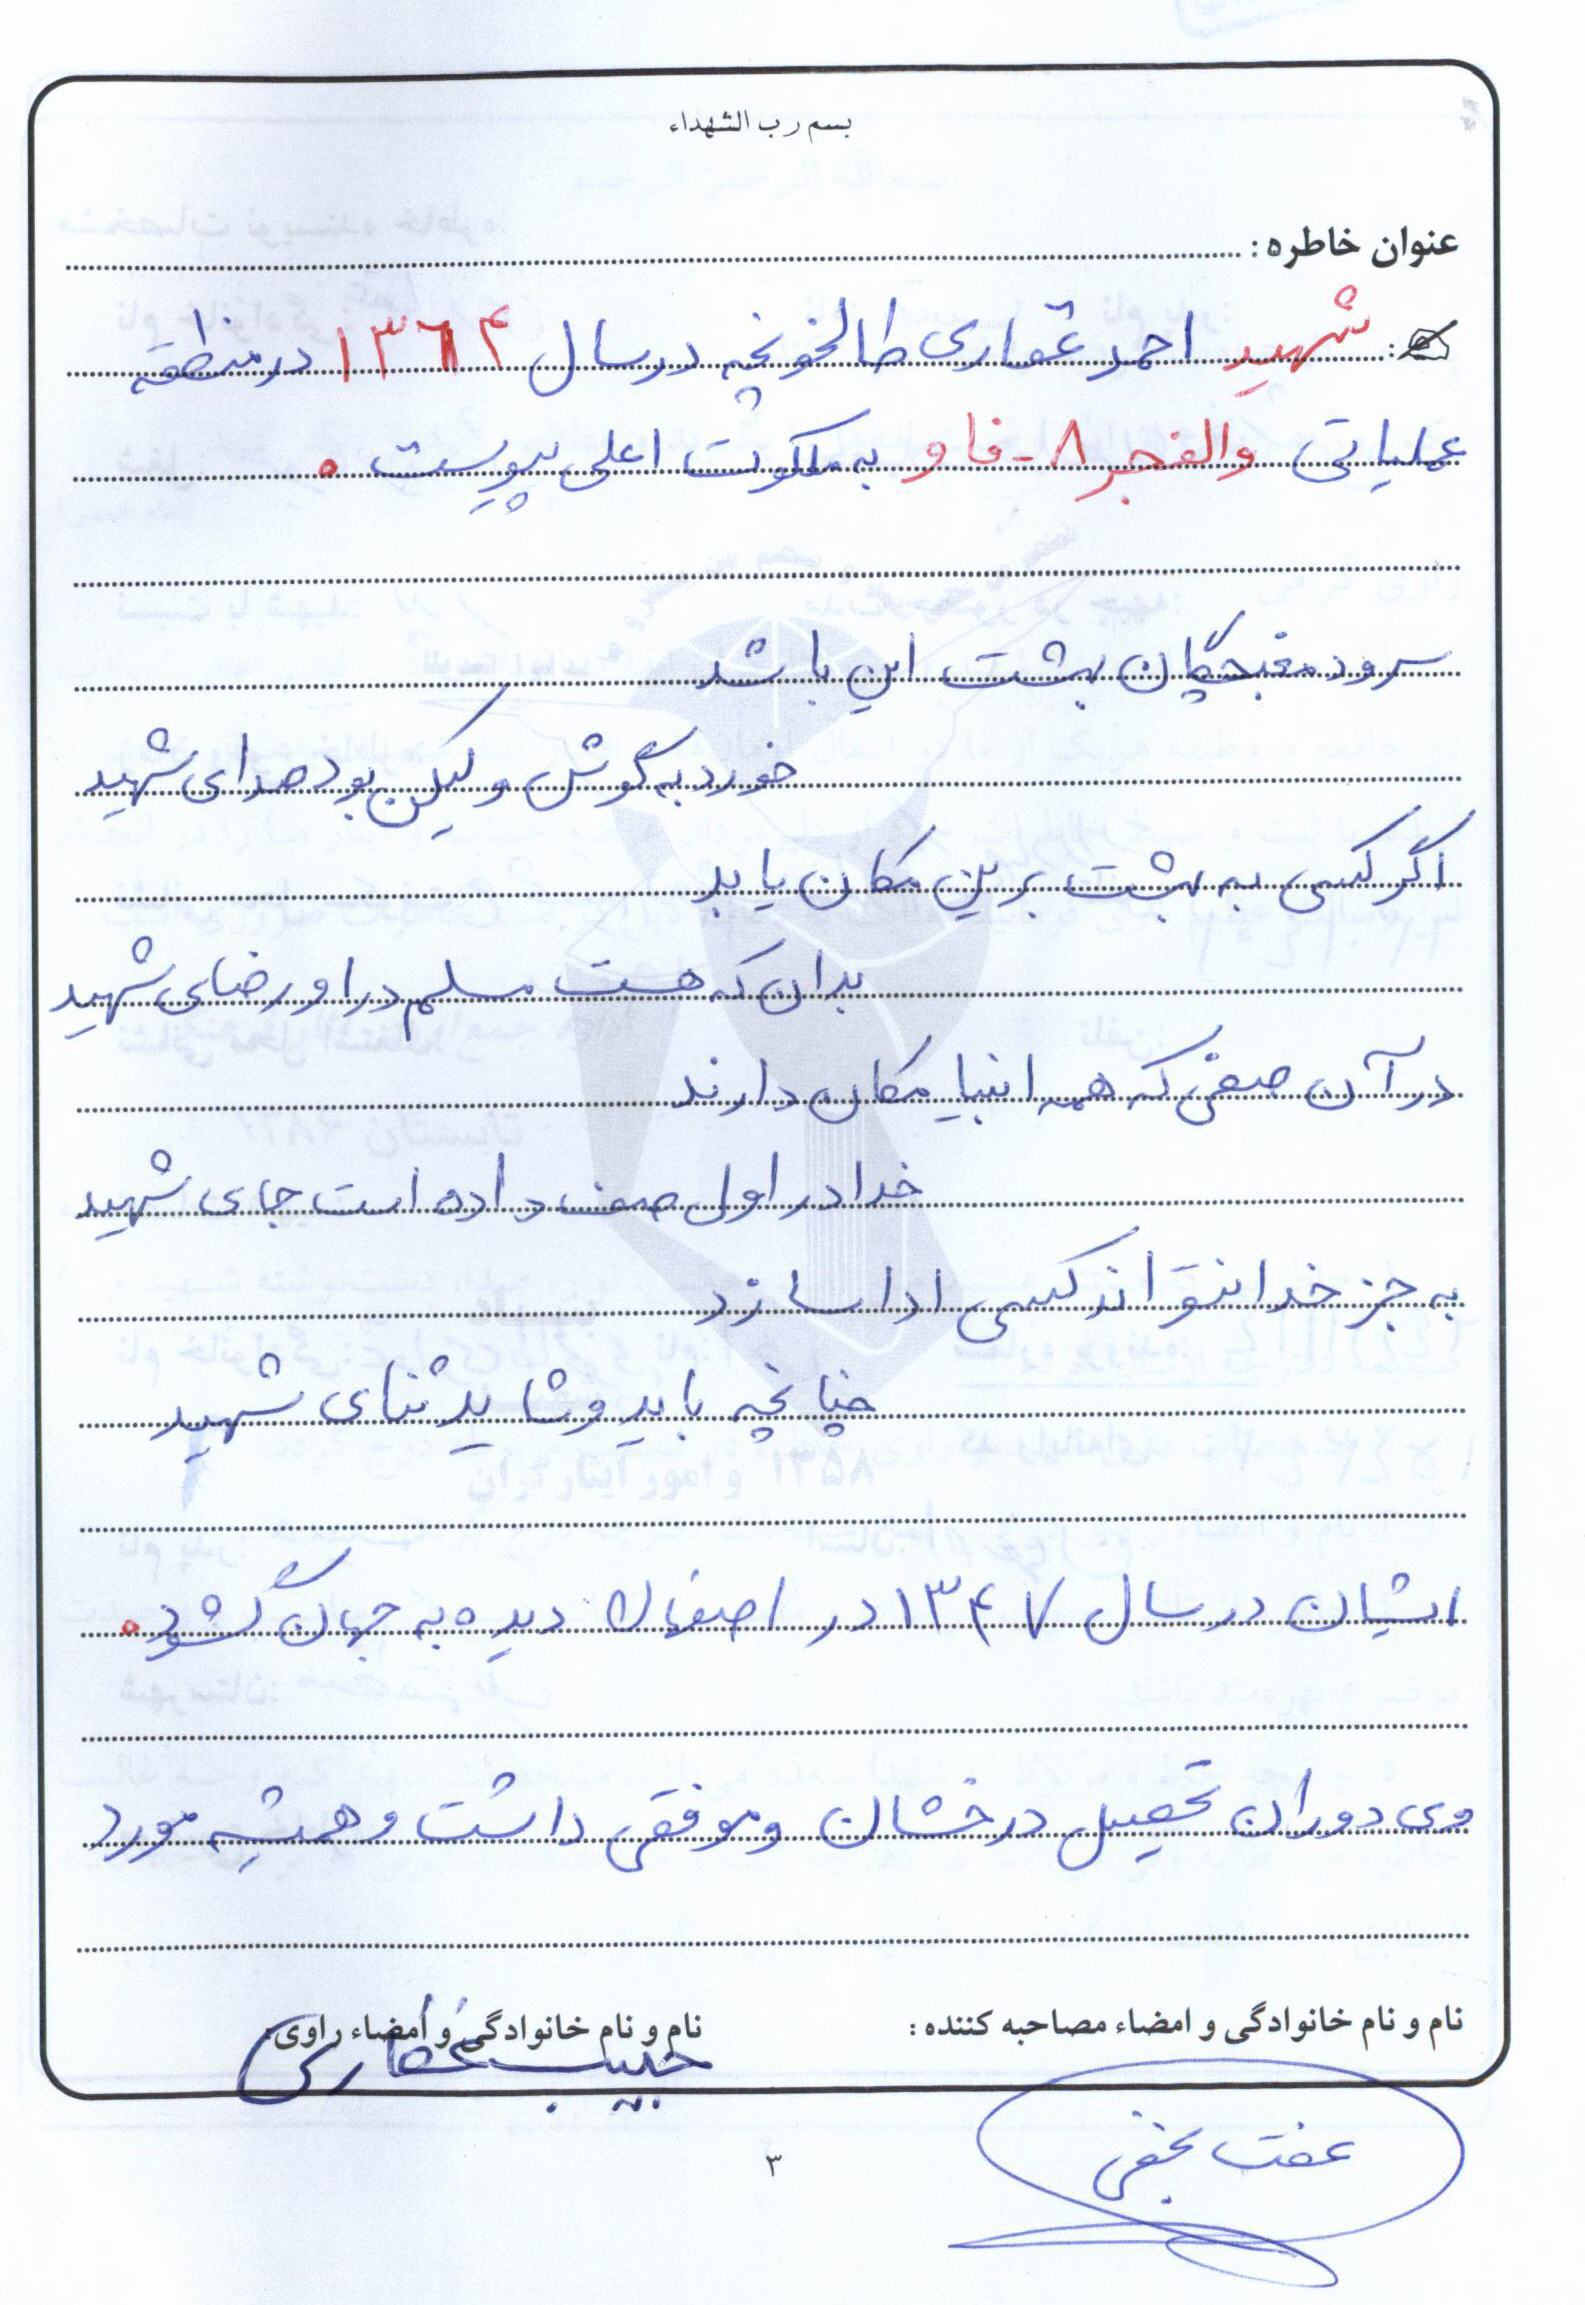 بسم رب الشهداء
عنوان خاطره:
شهید احمد غفاری طالخونچه در سال ۱۳۶۴ در منطقه
عملیاتی والفجر ۸ - فاو به ملکوت اعلی پیوست.
سرود مغبچگان بهشت این باشد
خورد به گوش ولیکن بود صدای شهید
اگر کسی به بهشت برین مکان یابد
بدان که هست مسلم در او رضای شهید
در آن صفی که همه انبیا مکان دارند
خدا در اول صف داده است جای شهید
به جز خدا نتواند کسی ادا سازد
چنانچه باید و شاید ثنای شهید
ایشان در سال ۱۳۴۷ در اصفهان دیده به جهان گشود.
وی دوران تحصیل درخشان و موفقی داشت و همیشه مورد
نام و نام خانوادگی و امضاء مصاحبه کننده:
نام و نام خانوادگی و امضاء راوی:
حبیب غفاری
عفت نجفی
۳